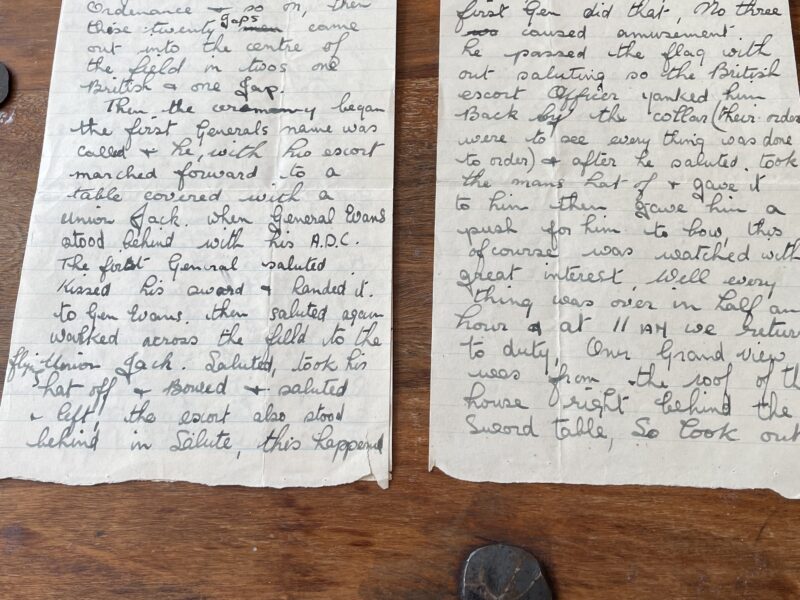 Ordenance + so on, then
these twenty Japs men came
out into the centre of
the field in twos one
British + one Jap.
Then the ceremony began
the first Generals name was
called + he, with his escort
marched forward to a
table covered with a
union Jack. when General Evans
stood behind with his A.D.C.
The first General saluted
Kissed his sword + handed it.
to Gen Evans. then saluted again
walked across the field to the
Union Jack. Saluted, took his
hat off + Bowed + saluted
+ left, the escort also stood
behind in Salute, this happend
first Gen did that, No three
caused amusement.
he passed the flag with
out saluting so the British
escort Officer yanked him
Back by the collar (their order
were to see every thing was done
to order) + after he saluted took
the mans hat of + gave it
to him then gave him a
push for him to bow, this
ofcourse was watched with
great interest, Well every
thing was over in half an
hour + at 11 AM we return
to duty, Our Grand view
was from the roof of th
house right behind the
Sword table, So look out